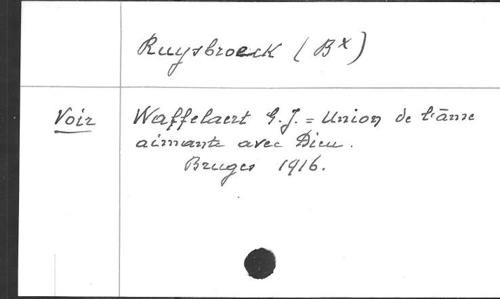 Ruysbroeck (Bx)
Voir Waffelaert G.J. = Union de l'âme
aimante avec Dieu.
Bruges 1916.